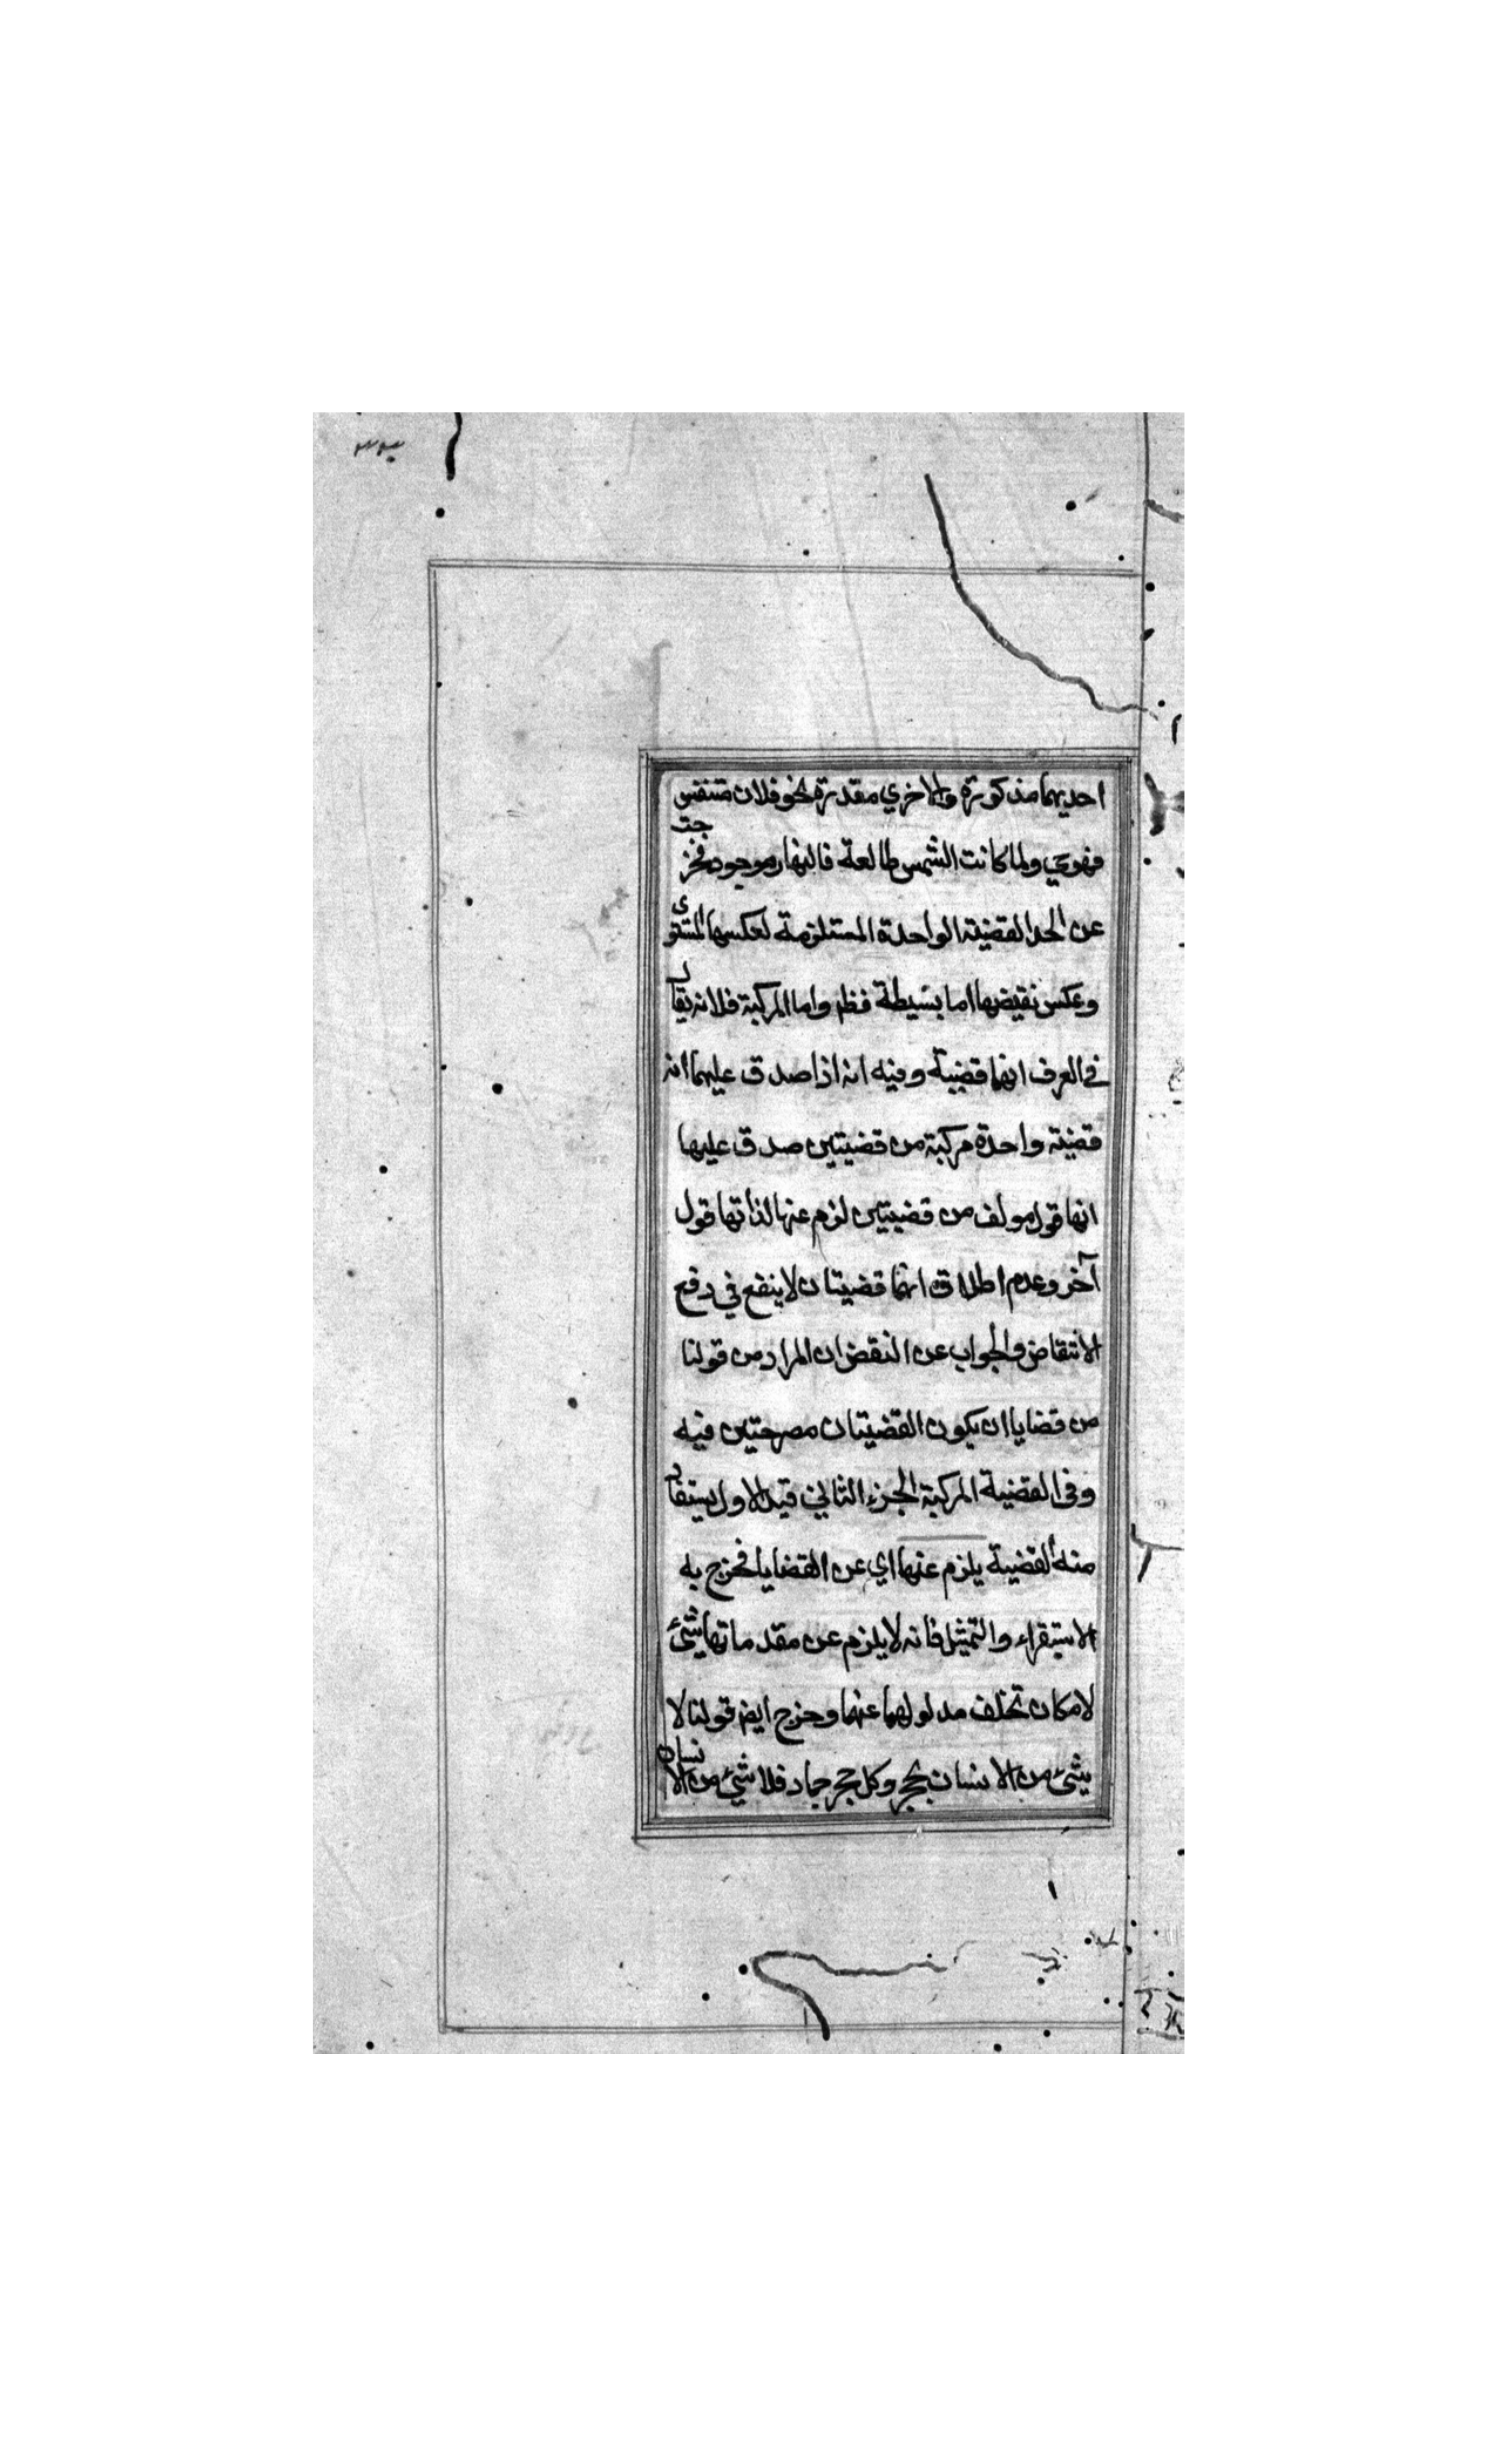 احديهما مذكورة والاخري مقدرة نحو فلان متنفس
فهو حي ولما كانت الشمس طالعة فالنهار موجود فخرجت
عن الحد القضية الواحدة المستلزمة لعكسها المستوى
وعكس نقيضها اما بسيطة فظ واما المركبة فلانه يقال
في العرف انها قضية وفيه انه اذا صدق عليهما انه
قضية واحدة مركبة من قضيتين صدق عليها
انها قول مولف من قضيتين لزم عنها لذاتها قول
آخر وعدم اطلاق انهما قضيتان لا ينفع في دفع
الانتقاض والجواب عن النقض ان المراد من قولنا
من قضايا ان يكون القضيتان مصرحتين فيه
وفي القضية المركبة الجزء الثاني قيد الاول يستفاد
منه القضية يلزم عنها اي عن القضايا فخرج به
الاستقراء والتمثيل فانه لا يلزم عن مقدماتها شئ
لامكان تخلف مدلولهما عنهما وخرج ايض قولنا لا
شئ من الانسان بحجر وكل حجر جماد فلا شئ من الانسان